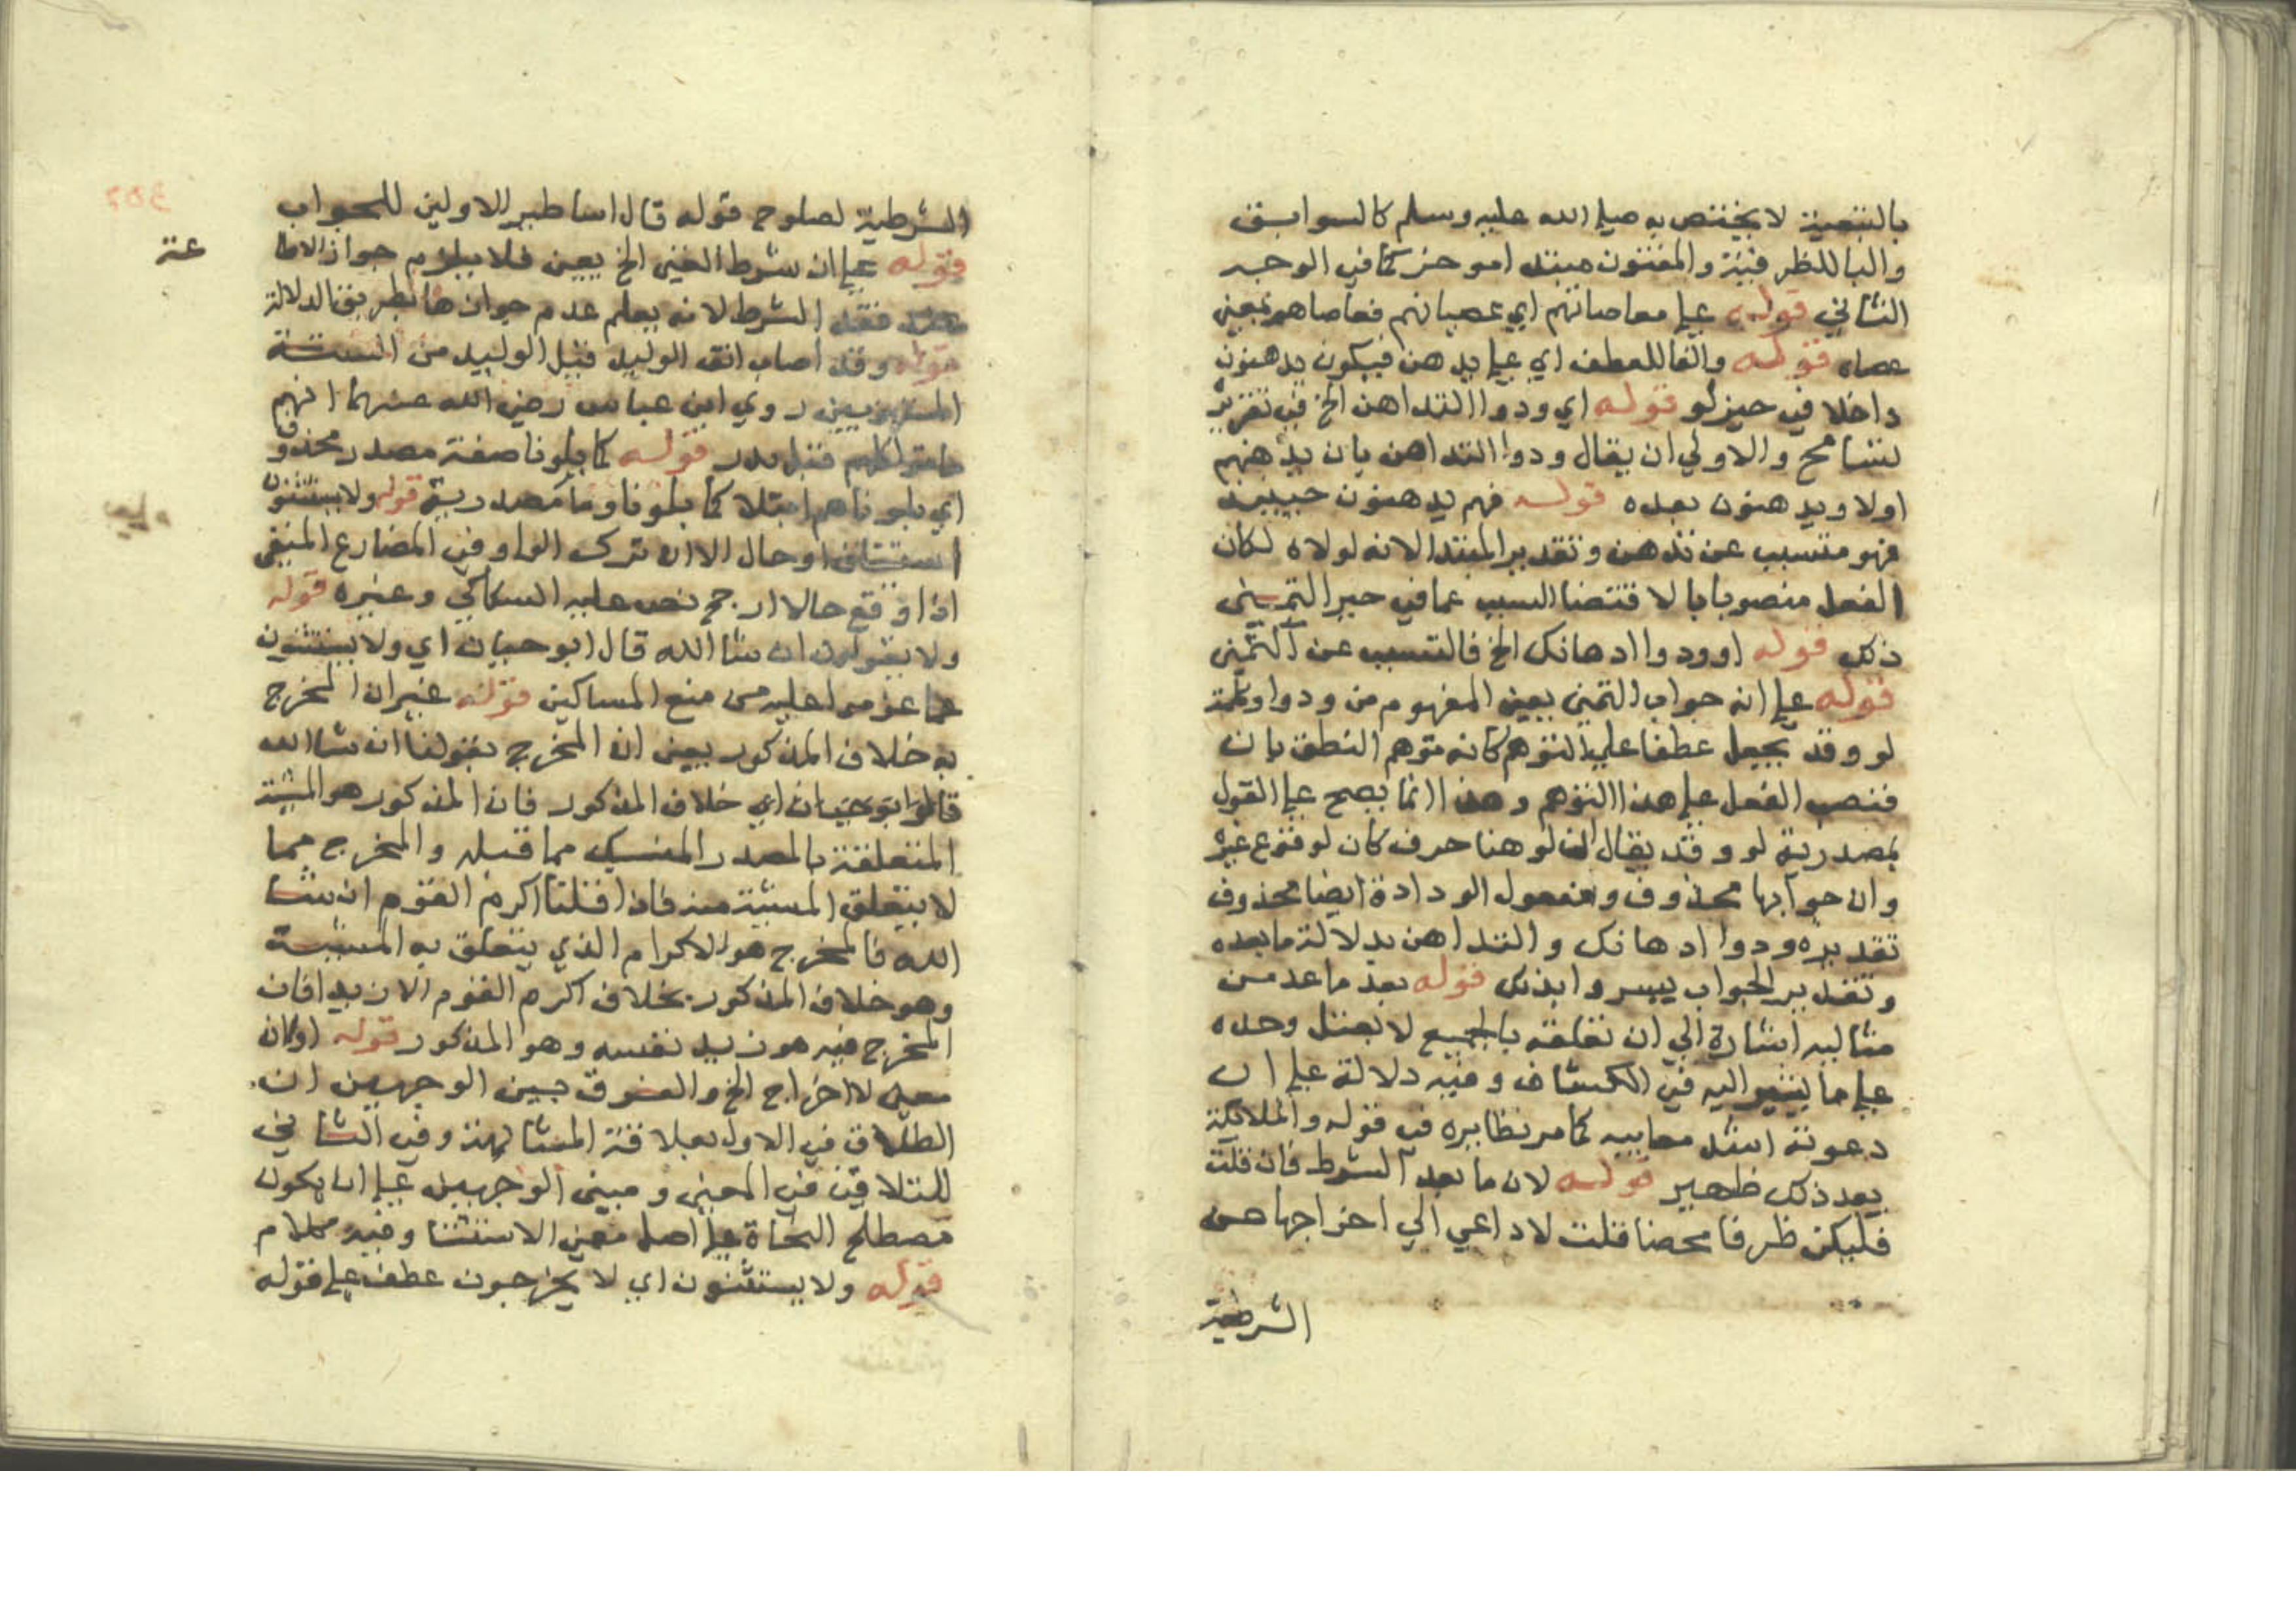 بالتبعية لا يختص به صلى الله عليه وسلم كالسوابق
والبا للظرفية والمفتون مبتدا موخر كما في الوجه
الثاني قوله على معاصاتهم اي عصيانهم فعاصاهم بمعنى
عصاه قوله والفا للعطف اي على يدهن فيكون يدهنون
داخلا في حيز لو قوله اي ودوا التداهن الخ في تقريره
تسامح والاولي ان يقال ودوا التداهن بان يدهنهم
اولا ويدهنون بعده قوله فهم يدهنون حينيد
فهو متسبب عن تدهن وتقدير المبتدا لانه لولاه لكان
الفعل منصوبا لاقتضا السبب عما في حيز التمني
ذلك قوله او ودوا ادهانك الخ فالتسبب عن التمني
قوله على انه جواب التمني يعني المفهوم من ودوا وكلمة
لو وقد يجعل عطفا على التوهم كانه توهم النطق بان
فنصب الفعل على هذا التوهم وهذا انما يصح على القول
بمصدرية لو وقد يقال ان لو هنا حرف كان لوقوع غيره
وان جوابها محذوف ومفعول الودادة ايضا محذوف
تقديره ودوا ادهانك والتداهن بدلالة ما بعده
وتقدير الجواب يسروا بذلك قوله بعد ما عد من
مثالبه اشارة الي ان تعلقه بالجميع لا بعتل وحده
على ما يشير اليه في الكشاف وفيه دلالة على ان
دعوته اشد معايبه كما مر نظايره في قوله والملائكة
بعد ذلك ظهير قوله لان ما بعد الشرط فان قلت
فليكن ظرفا محضا قلت لا داعي الي اخراجها من
الشرطية
الشرطية لصلوح قوله قال اساطير الاولين للجواب
قوله على ان شرط الغني الخ يعين فلا يلزم جواز الاطا
عته
عند فقد الشرط لانه يعلم عدم جوازها بطريق الدلالة
قوله وقد اصاب انف الوليد قيل الوليد من الستة
المستهزيين روي ابن عباس رضي الله عنهما انهم
ماتوا كلهم قبل بدر قوله كما بلونا صفة مصدر محذوف
اي بلوناهم ابتلا كما بلونا وما مصدرية قوله ولا يستثنون
استيناف او حال الا ان ترك الواو في المضارع المنفي
اذا وقع حالا ارجح نص عليه السكاكي وغيره قوله
ولا يقولون ان شا الله قال ابو حيان اي ولا يستثنون
عما عزموا عليه من منع المساكين قوله غير ان المخرج
به خلاف المذكور يعني ان المخرج بقولنا ان شا الله
قالوا ابو حيان اي خلاف المذكور فان المذكور هو المشية
المتعلقة بالمصدر المنسبك مما قبله والمخرج مما
لا يتعلق المشية منه فاذا قلنا اكرم القوم ان شا
الله فالمخرج هو الاكرام الذي يتعلق به المشية
وهو خلاف المذكور بخلاف اكرم القوم الا زيدا فان
المخرج فيه هو زيد نفسه وهو المذكور قوله او لان
معنى لا اخرج الخ والفرق بين الوجهين ان
الطلاق في الاول بعلاقة المشابهة وفي الثاني
للتلاقي في المعنى ومبنى الوجهين على ان يكون
مصطلح النحاة على اصل معنى الاستثنا وفيه كلام
قوله ولا يستثنون اي لا يخرجون عطف على قوله